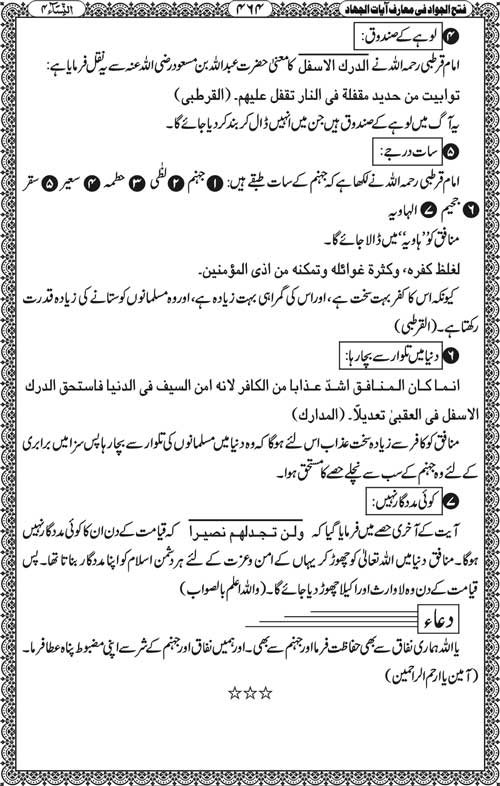 فتح الجواد فی معارف آیات الجهاد
۴۶۴
النِّسَآء ۴
۴ لوہے کے صندوق:
امام قرطبی رحمہ اللہ نے الدرک الاسفل کا معنیٰ حضرت عبداللہ بن مسعود رضی اللہ عنہ سے یہ نقل فرمایا ہے:
توابیت من حدید مقفلة فی النار تقفل علیهم۔ (القرطبی)
یہ آگ میں لوہے کے صندوق ہیں جن میں انہیں ڈال کر بند کر دیا جائے گا۔
۵ سات درجے:
امام قرطبی رحمہ اللہ نے لکھا ہے کہ جہنم کے سات طبقے ہیں: ۱ جہنم ۲ لظٰی ۳ حطمہ ۴ سعیر ۵ سقر
۶ جحیم ۷ الہاویہ
منافق کو ”ہاویہ“ میں ڈالا جائے گا۔
لغلظ کفرہ، وکثرة غوائله وتمکنه من اذی المؤمنین۔
کیونکہ اس کا کفر بہت سخت ہے، اور اس کی گمراہی بہت زیادہ ہے، اور وہ مسلمانوں کو ستانے کی زیادہ قدرت
رکھتا ہے۔ (القرطبی)
۶ دنیا میں تلوار سے بچا رہا:
انما کان المنافق اشدّ عذابا من الکافر لانه امن السیف فی الدنیا فاستحق الدرک
الاسفل فی العقبیٰ تعدیلاً۔ (المدارک)
منافق کو کافر سے زیادہ سخت عذاب اس لئے ہوگا کہ وہ دنیا میں مسلمانوں کی تلوار سے بچا رہا پس سزا میں برابری
کے لئے وہ جہنم کے سب سے نچلے حصے کا مستحق ہوا۔
۷ کوئی مددگار نہیں:
آیت کے آخری حصے میں فرمایا گیا کہ ولن تجدلهم نصیرا کہ قیامت کے دن ان کا کوئی مددگار نہیں
ہوگا۔ منافق دنیا میں اللہ تعالیٰ کو چھوڑ کر یہاں کے امن و عزت کے لئے ہر دشمن اسلام کو اپنا مددگار بناتا تھا۔ پس
قیامت کے دن وہ لاوارث اور اکیلا چھوڑ دیا جائے گا۔ (واللہ اعلم بالصواب)
دعاء
یا اللہ ہماری نفاق سے بھی حفاظت فرما اور جہنم سے بھی۔ اور ہمیں نفاق اور جہنم کے شر سے اپنی مضبوط پناہ عطا فرما۔
(آمین یا ارحم الراحمین)